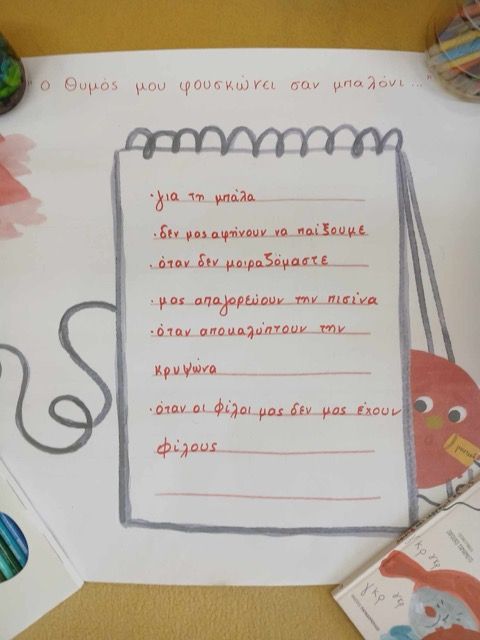 "ο θυμός μου φουσκώνει σαν μπαλόνι..."
·για τη μπάλα
·δεν μας αφήνουν να παίξουμε
·όταν δεν μοιραζόμαστε
·μας απαγορεύουν την πισίνα
·όταν αποκαλύπτουν την
κρυψώνα
·όταν οι φίλοι μας δεν μας έχουν
φίλους
γκρ γκρ
γκρ γκρ